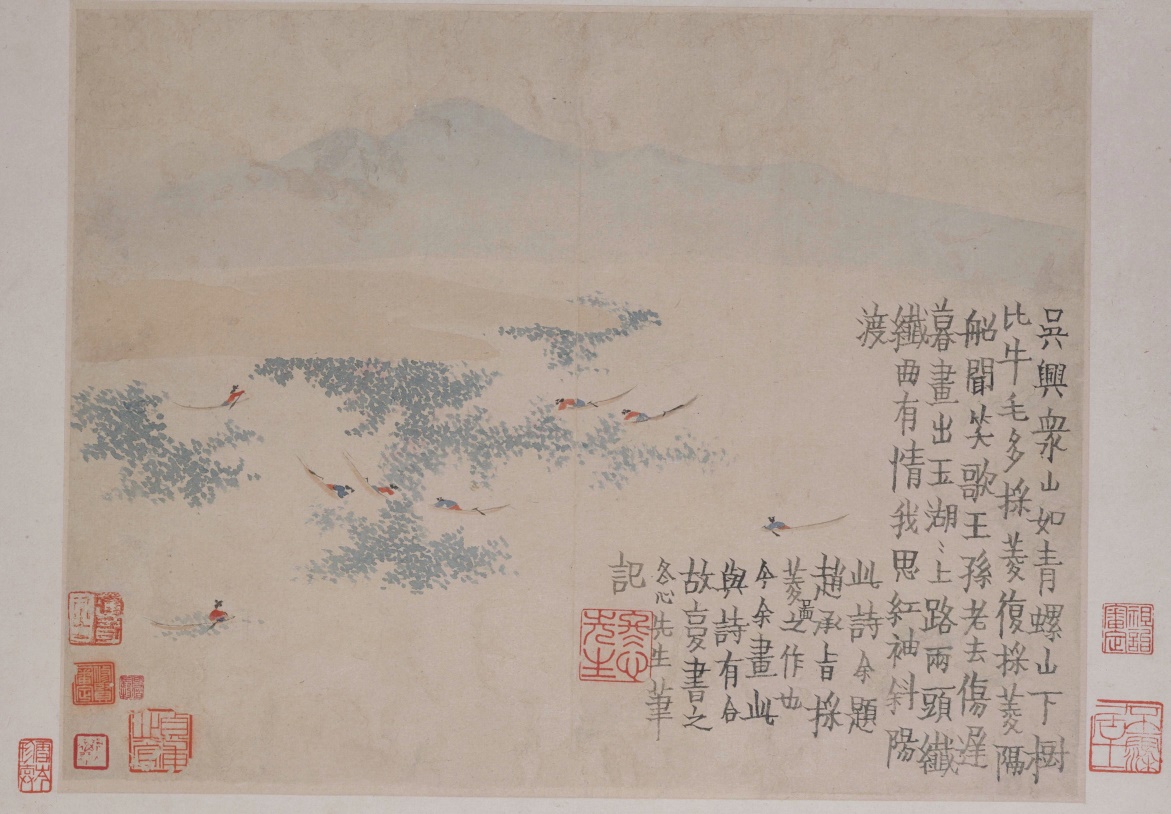 吳興衆山如青螺山下樹
比牛毛多採菱復採菱隔
船聞笑歌王孫老去傷遲
暮畫出玉湖〻上路兩頭纖
纖曲有情我思紅袖斜陽
渡
此詩余題
趙承旨採
菱圖之作也
今余畫此
與詩有合
故亯書之
冬心先生筆
記
冬心
先生